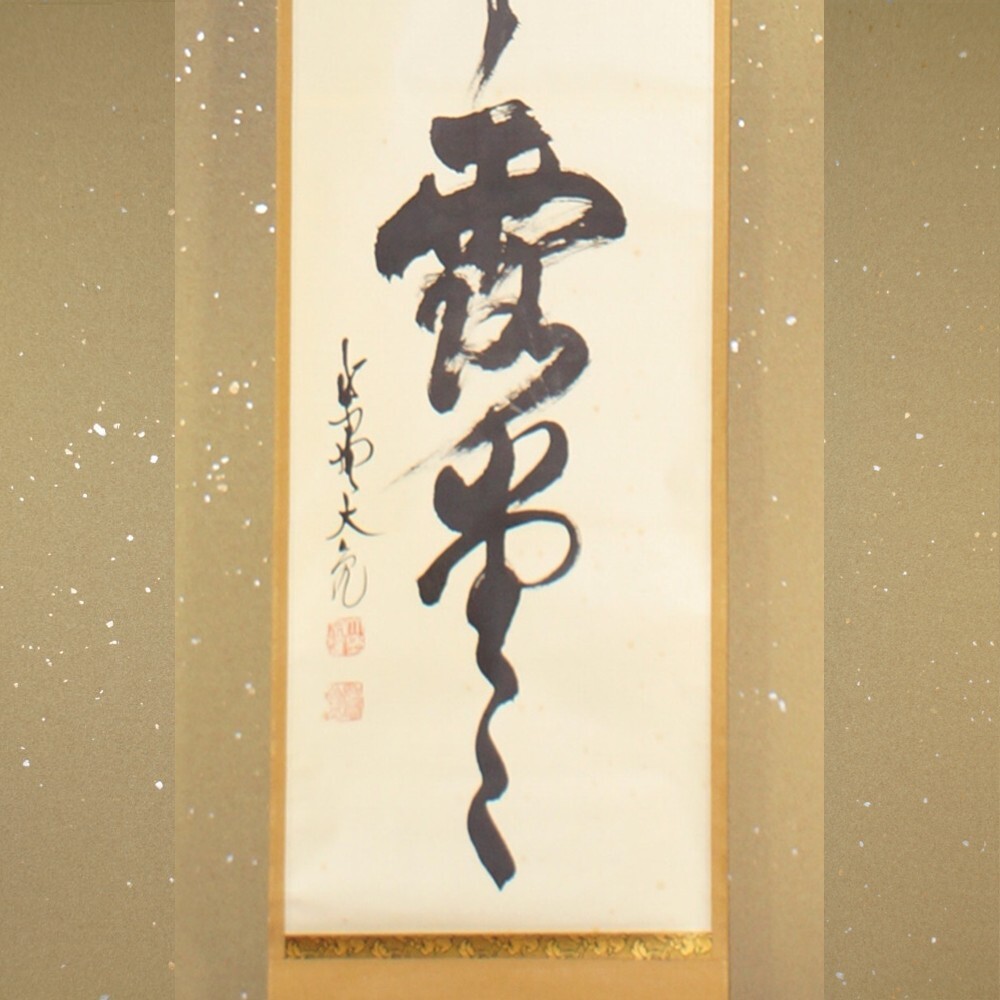 露堂々
紫野大亮